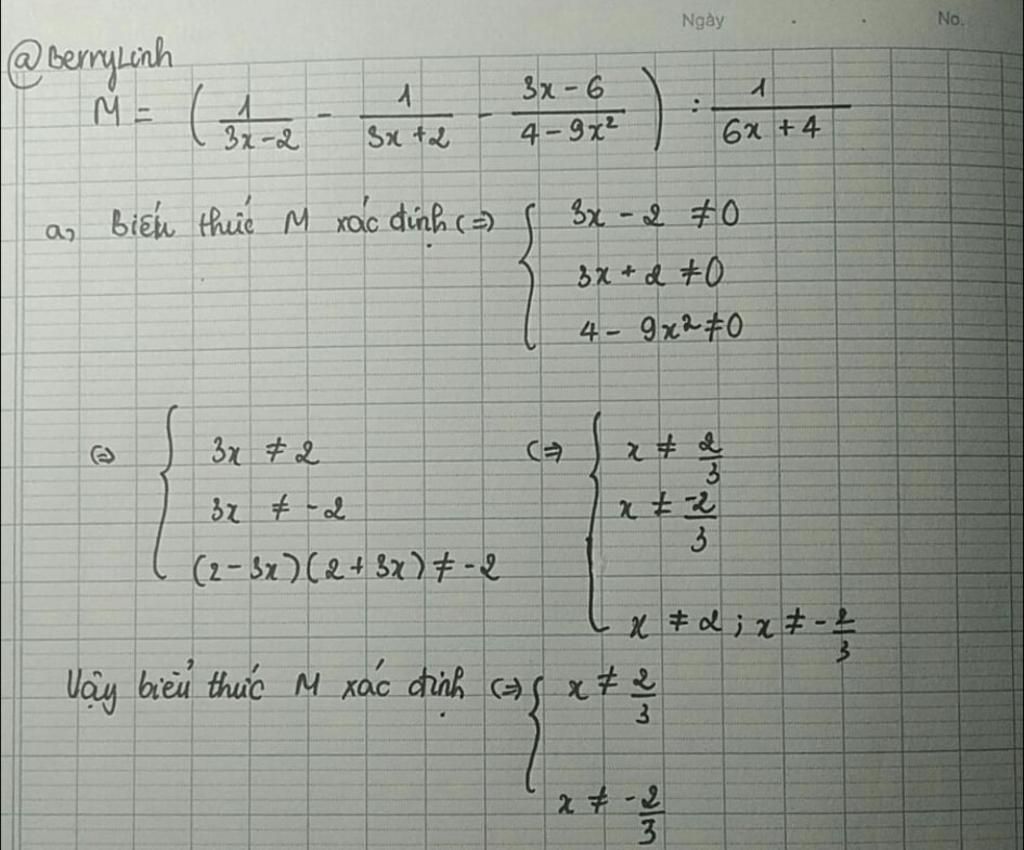 Ngày . . No.
@BerryLinh
M = ( 1/(3x-2) - 1/(3x+2) - (3x-6)/(4-9x²) ) : 1/(6x+4)
a, Biểu thức M xác định (=) { 3x - 2 ≠ 0
3x + 2 ≠ 0
4 - 9x² ≠ 0
(=) { 3x ≠ 2 (=) { x ≠ 2/3
3x ≠ -2 x ≠ -2/3
(2-3x)(2+3x) ≠ -2
x ≠ 2 ; x ≠ -2/3
Vậy biểu thức M xác định (=) { x ≠ 2/3
x ≠ -2/3